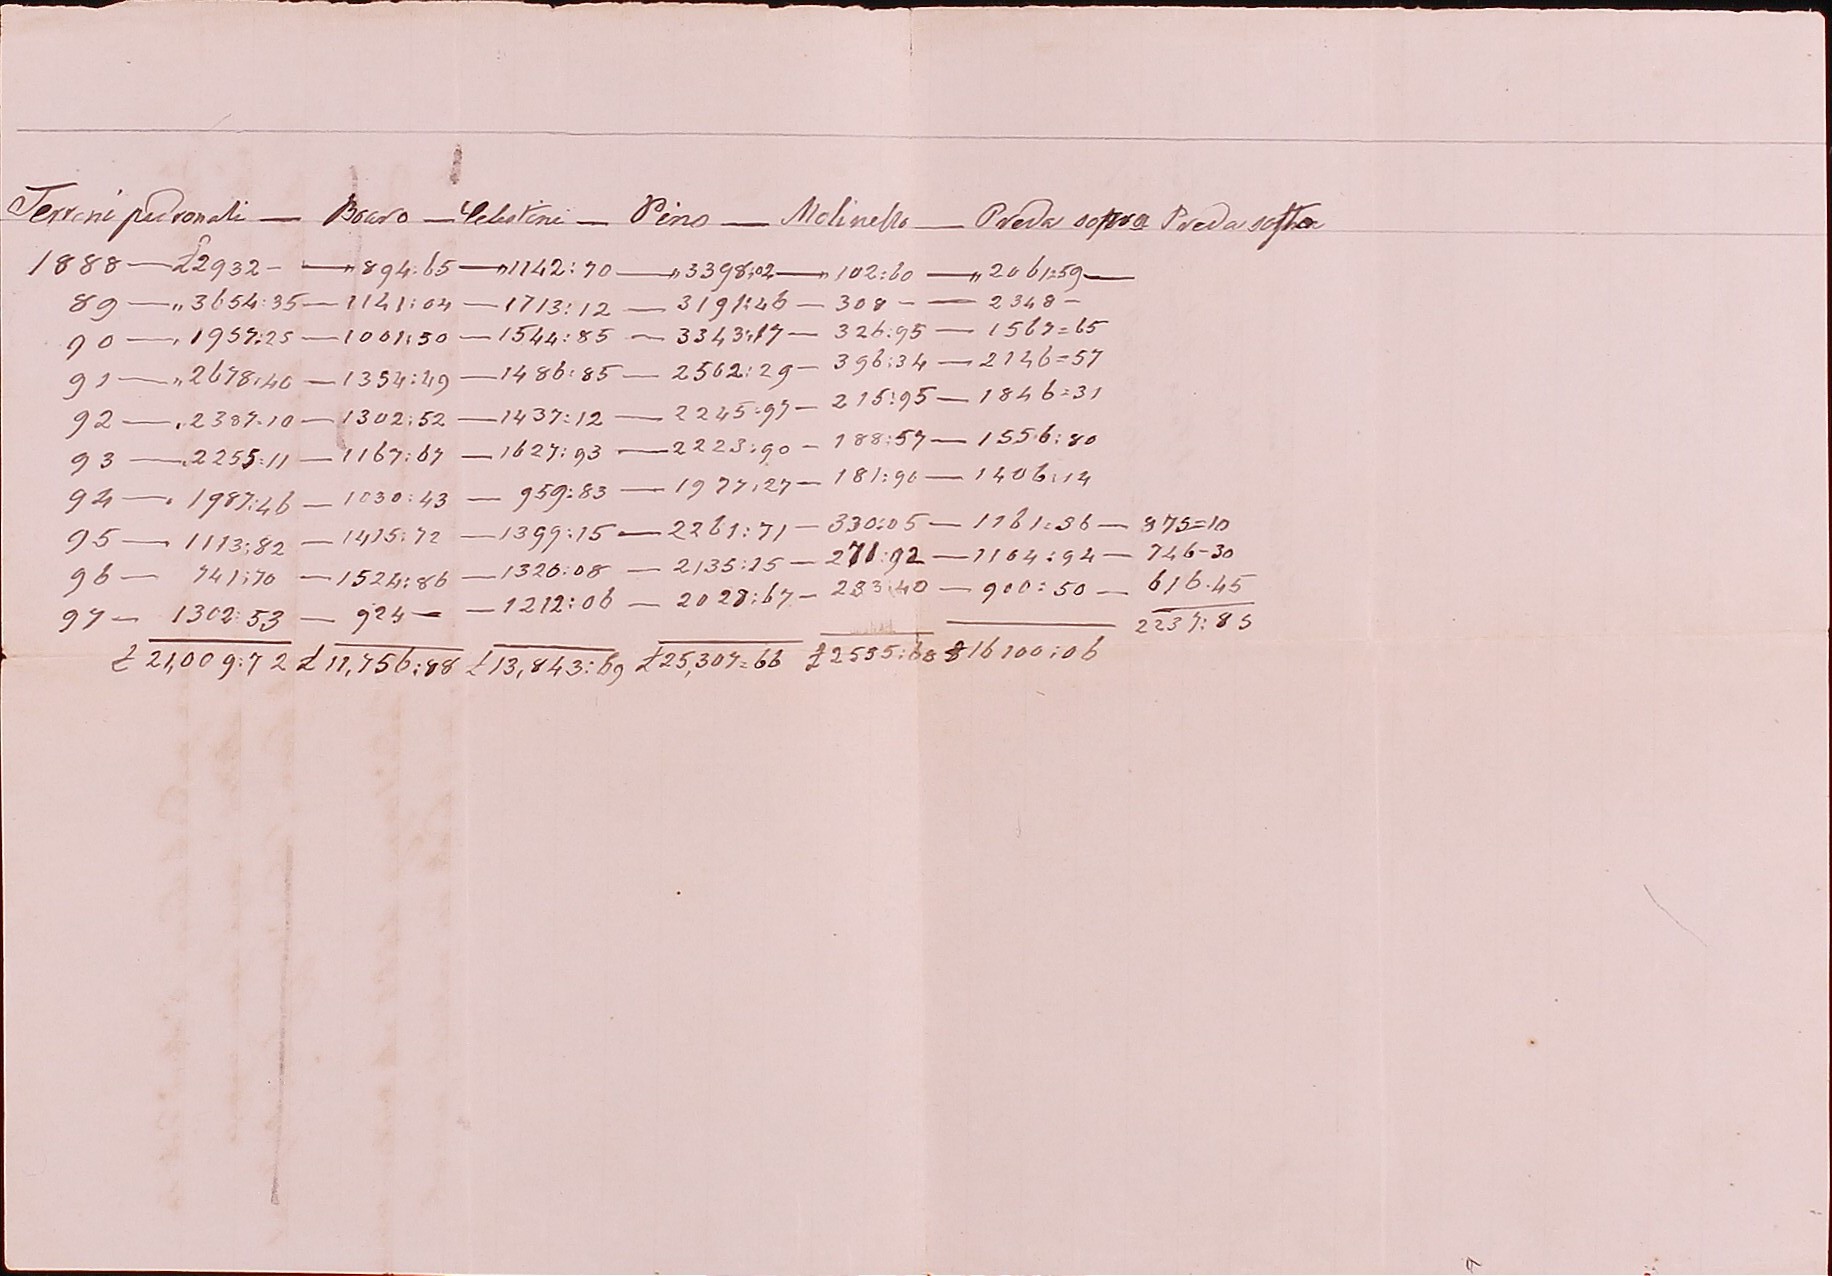 Terreni padronali — Boaro — Celestini — Pino — Molinello — Preda sopra Preda sotto
1888 — £ 2932 - — „ 894:65 — „ 1142:70 — „ 3398:02 — „ 102:60 — „ 2061:59 —
89 — „ 3654:35 — 1141:04 — 1713:12 — 3191:46 — 308 - — 2348 -
90 — „ 1957:25 — 1001:50 — 1544:85 — 3343:17 — 326:95 — 1567=65
91 — „ 2678:40 — 1354:49 — 1486:85 — 2502:29 — 396:34 — 2146=57
92 — „ 2387:10 — 1302:52 — 1437:12 — 2245:97 — 215:95 — 1846=31
93 — „ 2255:11 — 1167:67 — 1627:93 — 2223:90 — 188:57 — 1556:80
94 — „ 1987:46 — 1030:43 — 959:83 — 1977:27 — 181:90 — 1406:14
95 — 1113:82 — 1415:72 — 1399:15 — 2261:71 — 330:05 — 1161:56 — 875=10
96 — 741:70 — 1524:86 — 1320:08 — 2135:25 — 271:92 — 1104:94 — 746-30
97 — 1302:53 — 924 — — 1212:06 — 2028:67 — 283:40 — 900:50 — 616.45
2237:85
£ 21,009:72 £ 11,756:88 £ 13,843:69 £ 25,307=66 £ 2595:68 £ 16100:06